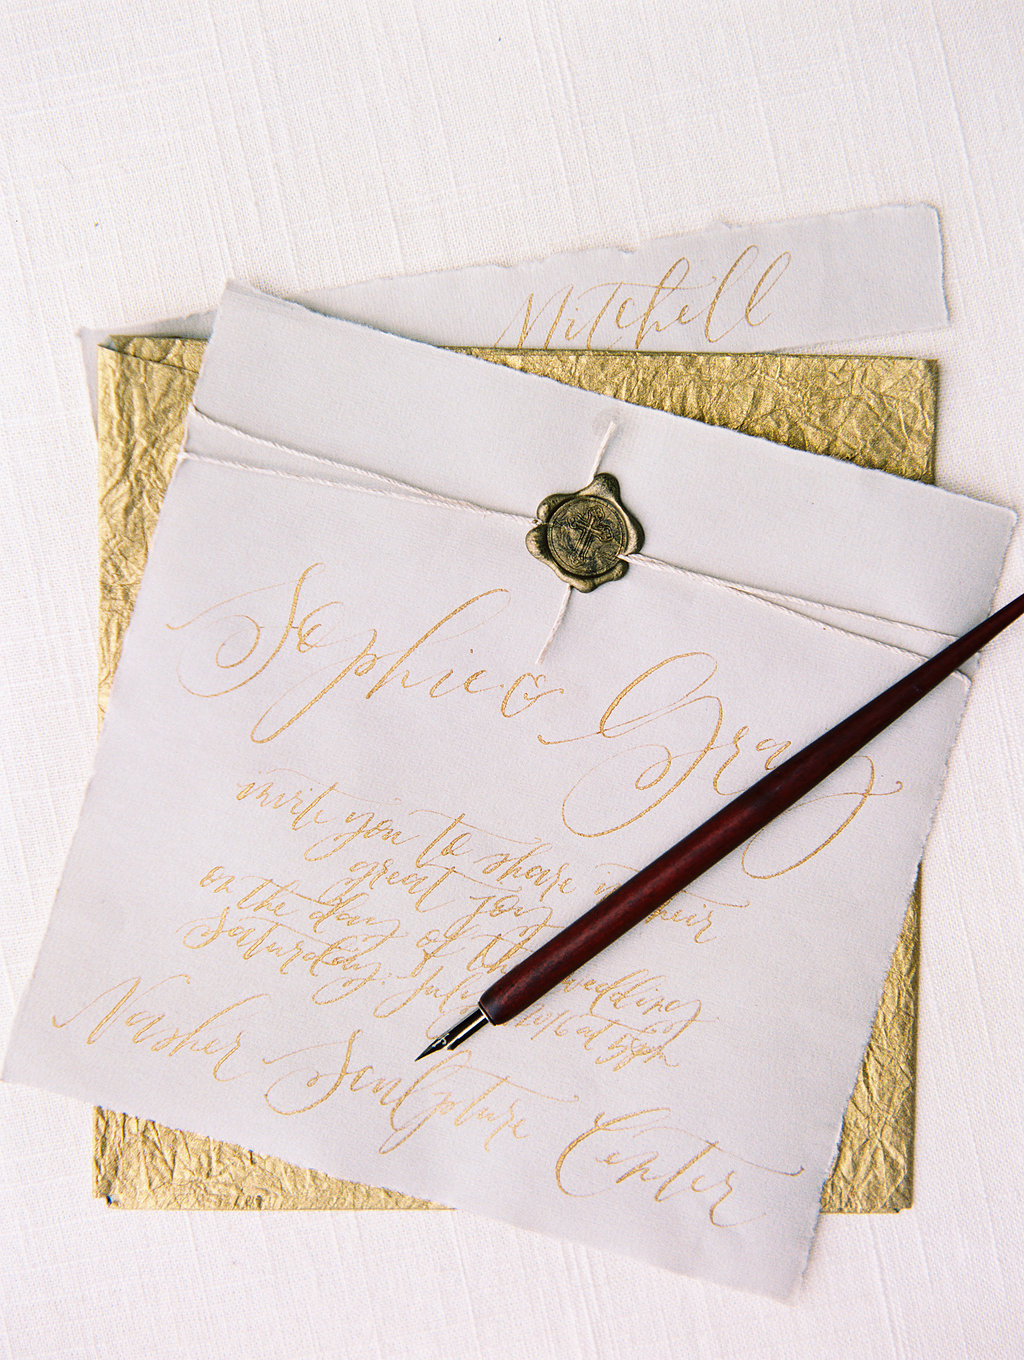 Mitchell
Sophie & Gray
invite you to share in their
great joy
on the day of the wedding
Saturday. July 2016 at
Nasher Sculpture Center